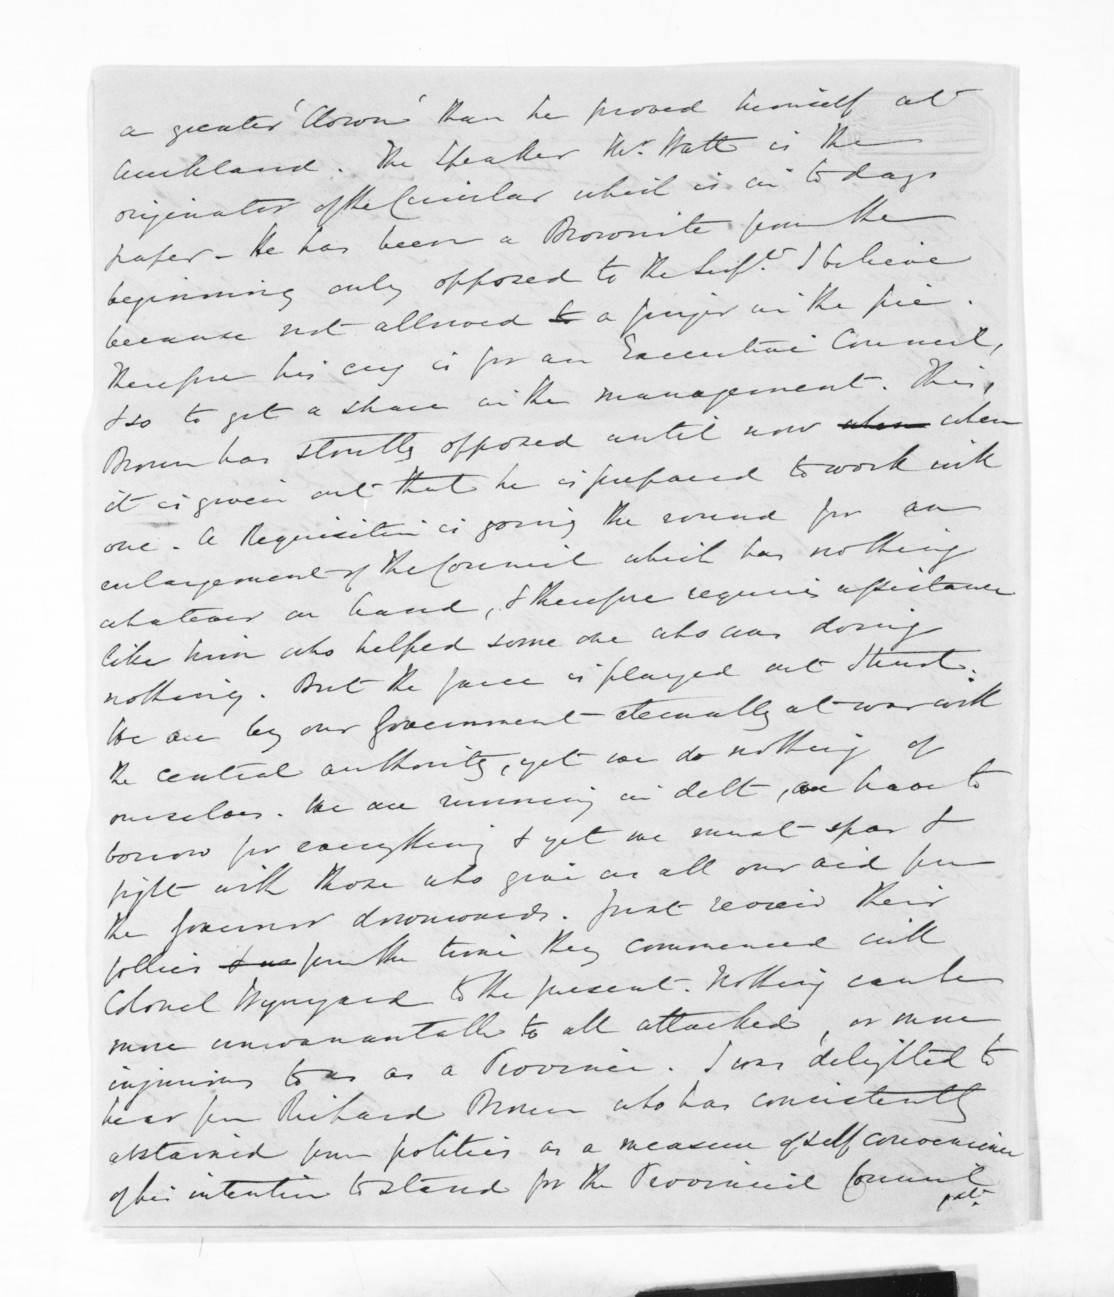 a greater 'Clown' than he proved himself at
Auckland. The Speaker Mr. Watt is the
originator of the Circular which is in to days
paper - He has been a Brownite from the
beginning only opposed to the Supt. I believe
because not allowed to a finger in the pie.
Therefore his cry is for an Executive Council,
& so to get a share in the management. This,
Brown has stoutly opposed until now when when
it is given out that he is prepared to work with
one. A Requisition is going the round for an
enlargement of the Council which has nothing
whatever on hand, & therefore requires assistance
like him who helped some one who was doing
nothing. But the farce is played out I trust.
We are by our Government eternally at war with
the central authority, yet we do nothing of
ourselves. We are running in debt, have to
borrow for everything & yet we must spar &
fight with those who give us all our aid from
the Governor downwards. Just review their
follies & us from the time they commenced with
Colonel Wynyard to the present. Nothing can be
more unwarrantable to all attacked, or more
injurious to us as a Province. I was delighted to
hear from Richard Brown who has consistently
abstained from politics as a measure of self convenience
of his intention to stand for the Provincial Council